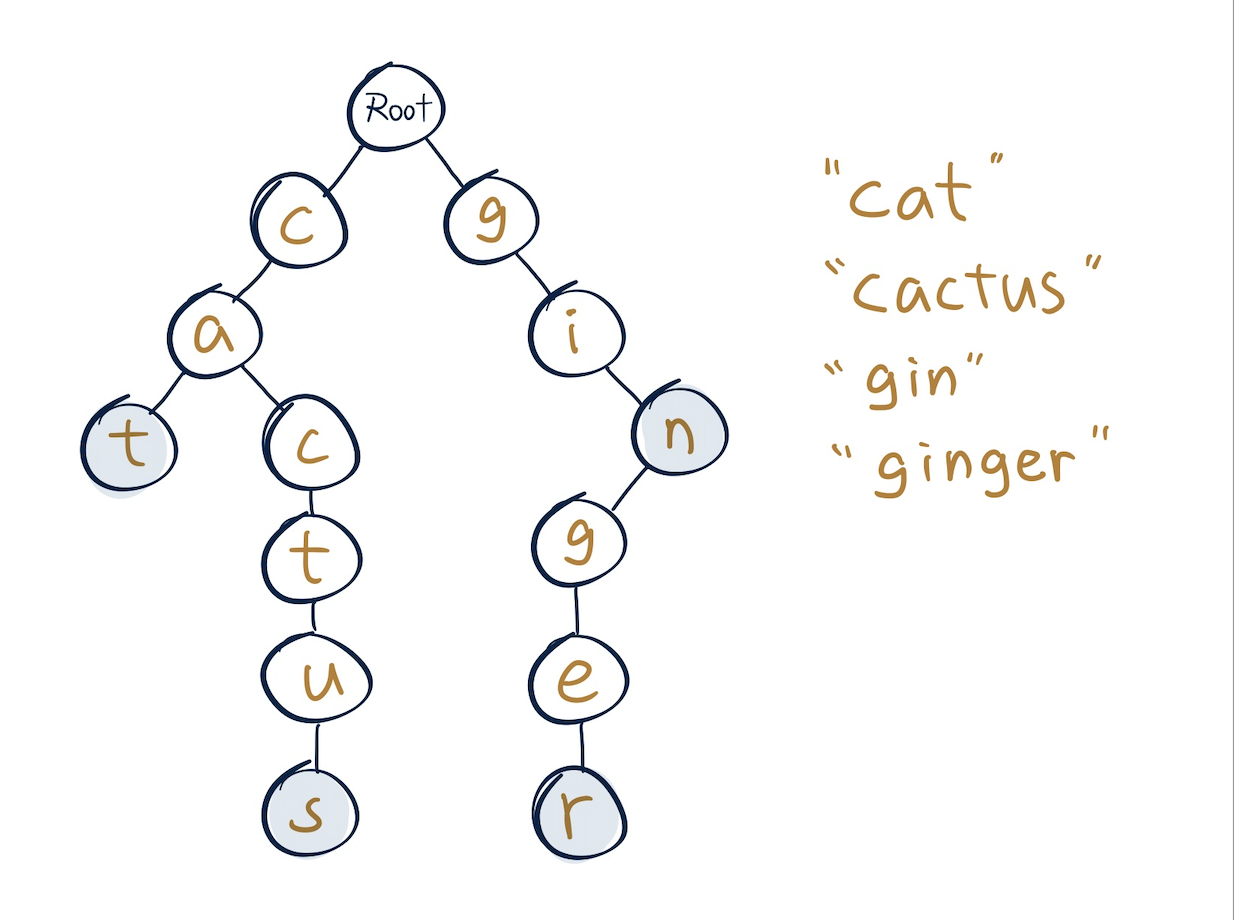 Root
c g
a i
t c n
t g
u e
s r
"cat"
"cactus"
"gin"
"ginger"